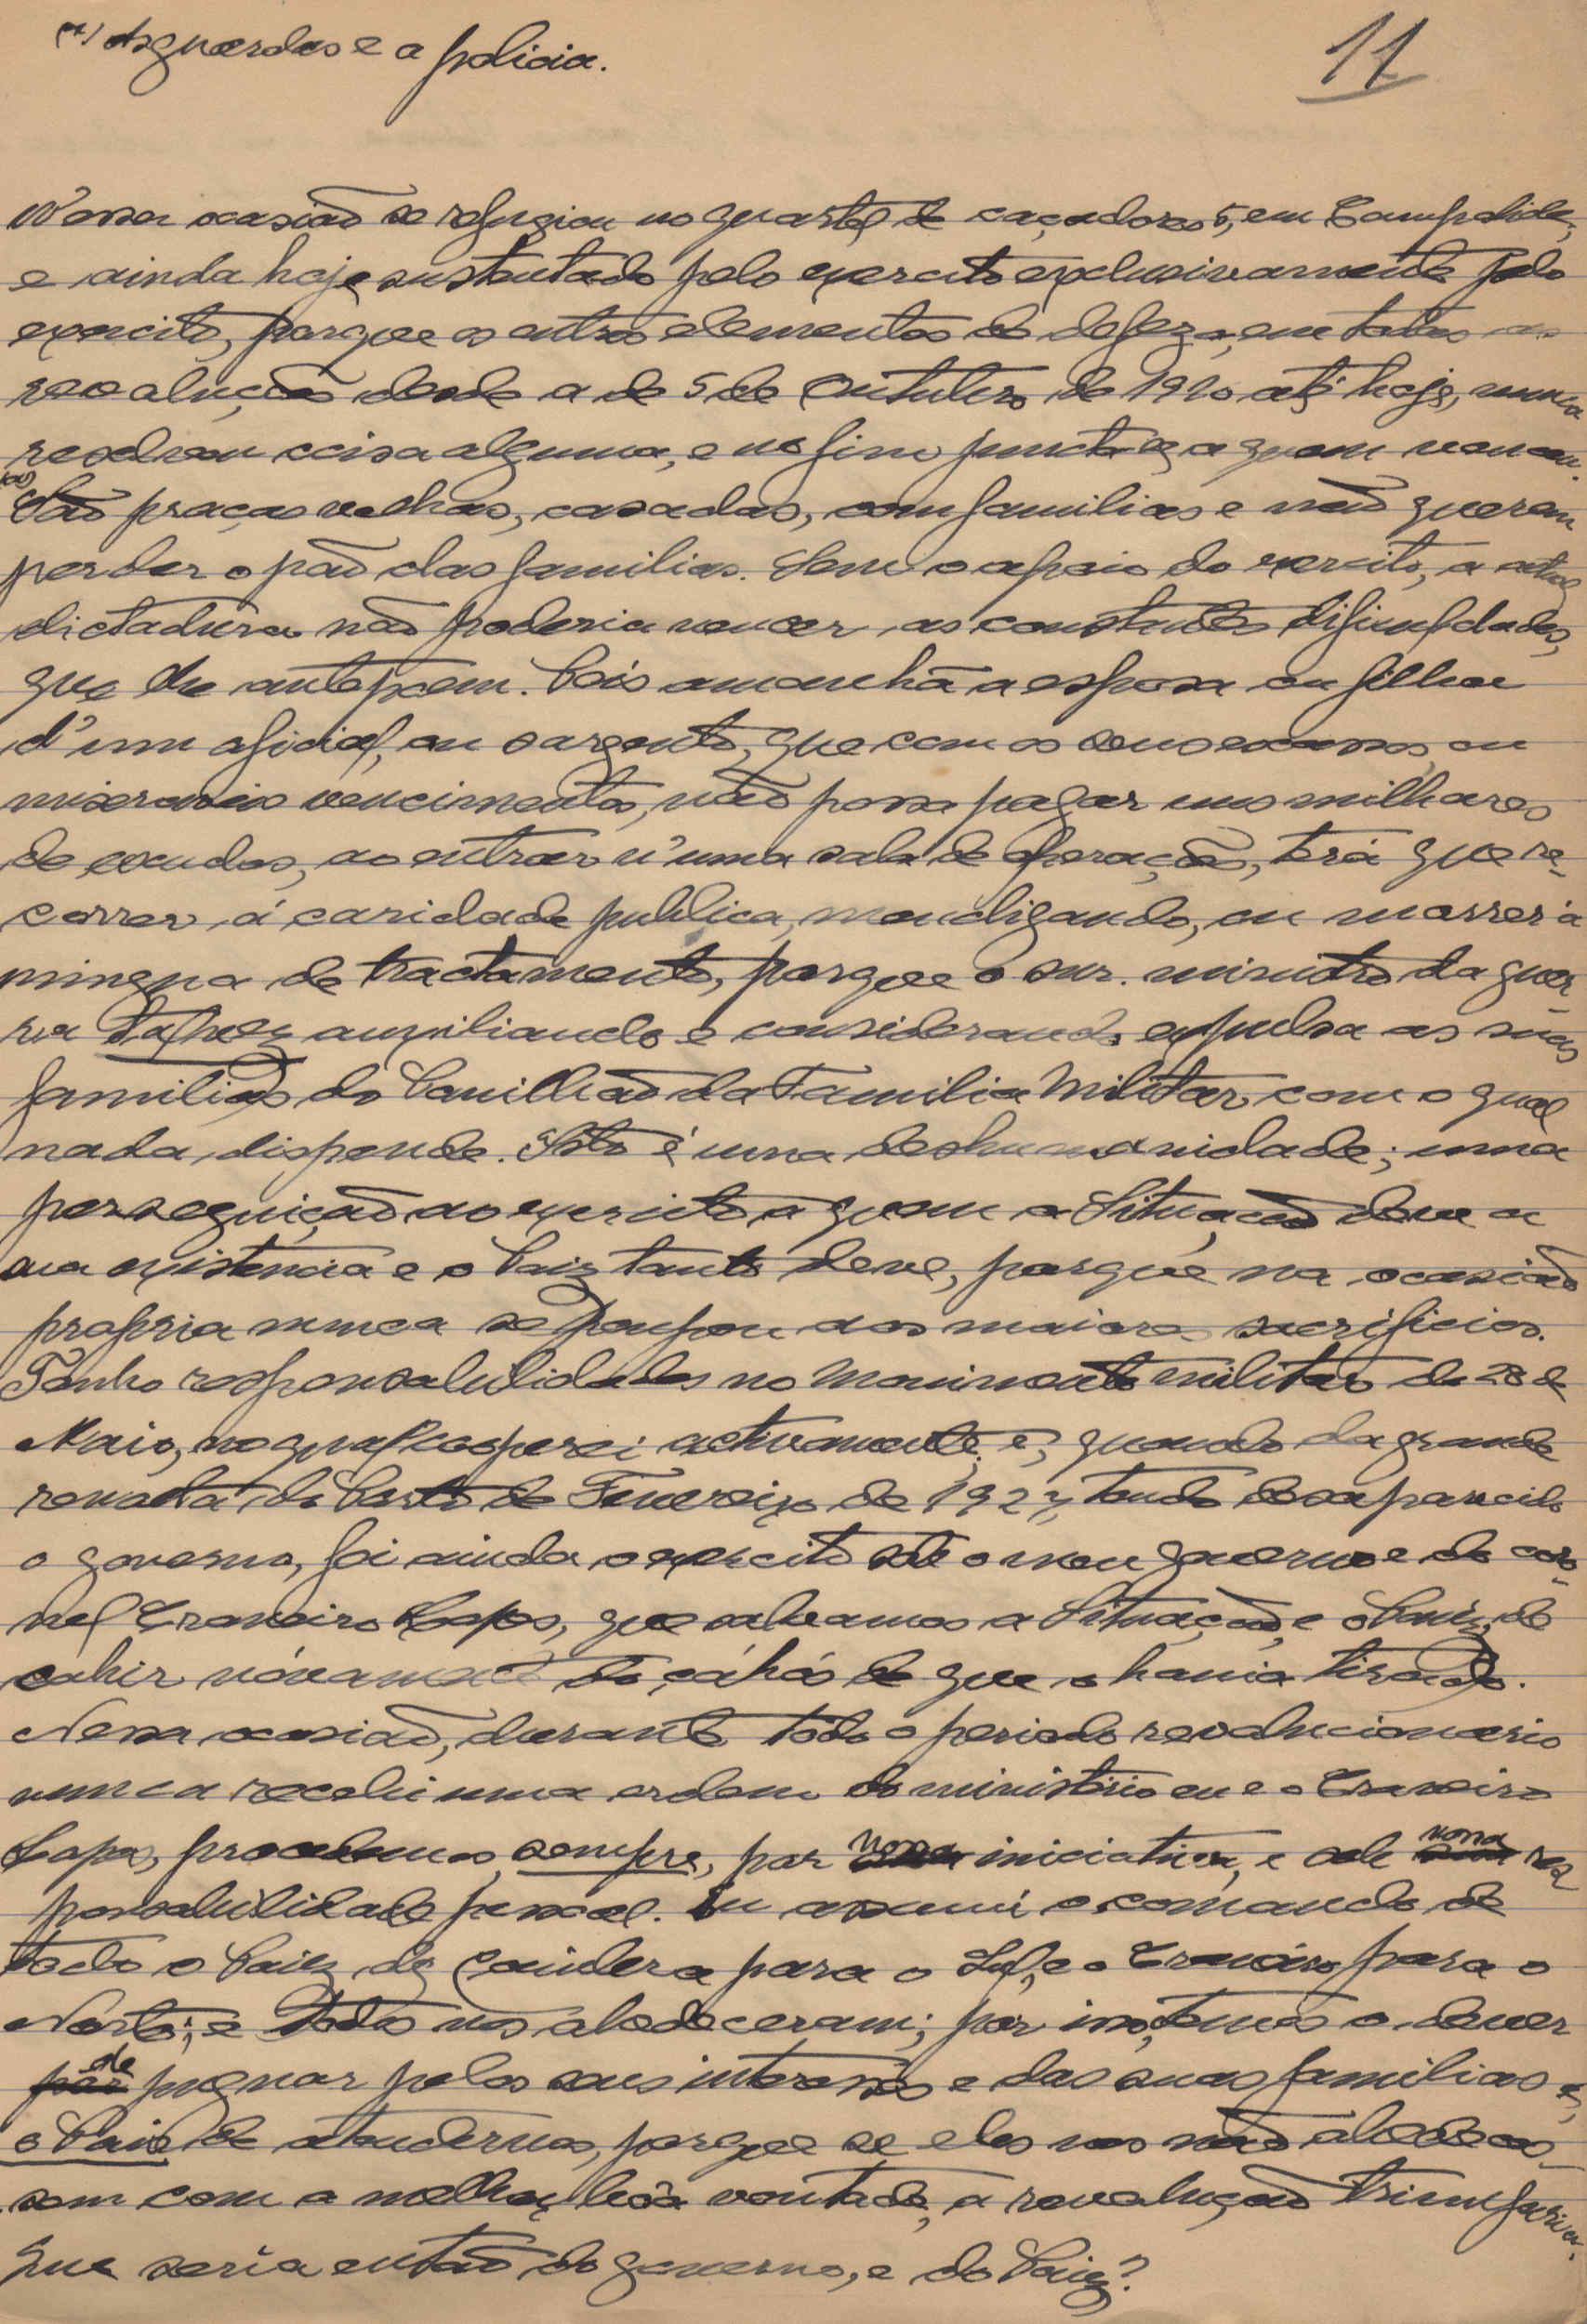 (a) As guardas e a policia.
11
N'essa ocasião se refugiou no quartel de caçadores 5, em Campolide,
e ainda hoje sustentado pelo exercito exclusivamente pelo
exercito, porque os outros elementos de defeza, em todas as
revoluções desde a de 5 de Outubro de 1910 até hoje, nunca
resolveu coisa alguma, e no fim juncta-se a quem venceu.
(a) São praças velhas, casadas, com familias e não querem
perder o pão das familias. Sem o apoio do exercito, a actual
dictadura não poderia vencer as constantes dificuldades,
que lhe antepoem. Pois amanhã a esposa ou filhos
d'um oficial, ou sargento, que com os seus escassos, ou
miseraveis vencimentos, não possa pagar uns milhares
de escudos, ao entrar n'uma sala de operações, terá que re-
correr á caridade publica, mendigando, ou morrer á
mingua de tractamento, porque o snr. ministro da guer-
ra talvez auxiliando e considerando expulsa as suas
familias do Pavilhão da Familia Militar, com o qual
nada dispende. Isto é uma deshumanidade; uma
perseguição ao exercito a quem a Situação deve a
sua existencia e o Paiz tanto deve, porque na ocasião
propria nunca se poupou aos maiores sacrificios.
Tenho responsabilidades no Movimento militar de 28 de
Maio, no qual cooperei activamente, e, quando da grande
revolta do Porto de Fevereiro de 1927, tendo desaparecido
o governo, foi ainda o exercito sob o meu governo e do coro-
nel Craveiro Lopes, que salvamos a Situação, e o Paiz, de
cahir nóvamente do cáhos de que o havia tirado.
Nessa ocasião, durante todo o periodo revolucionario
nunca recebi uma ordem do ministério eu e o Craveiro
Lopes, procedemos sempre, por nossa iniciativa, e sob nossa res-
ponsabilidade pessoal. Eu assumi o comando de
todo o Paiz de Coimbra para o Sul, e o Craveiro para o
Norte; e todos nos obedeceram; por isso, temos o dever
de pugnar pelos seus interesses e das suas familias e,
o Paiz de atendernos, porque se eles nos não obedeces-
sem com a melhor bôa vontade, a revolução triunfaria.
Que seria então do governo, e do Paiz?